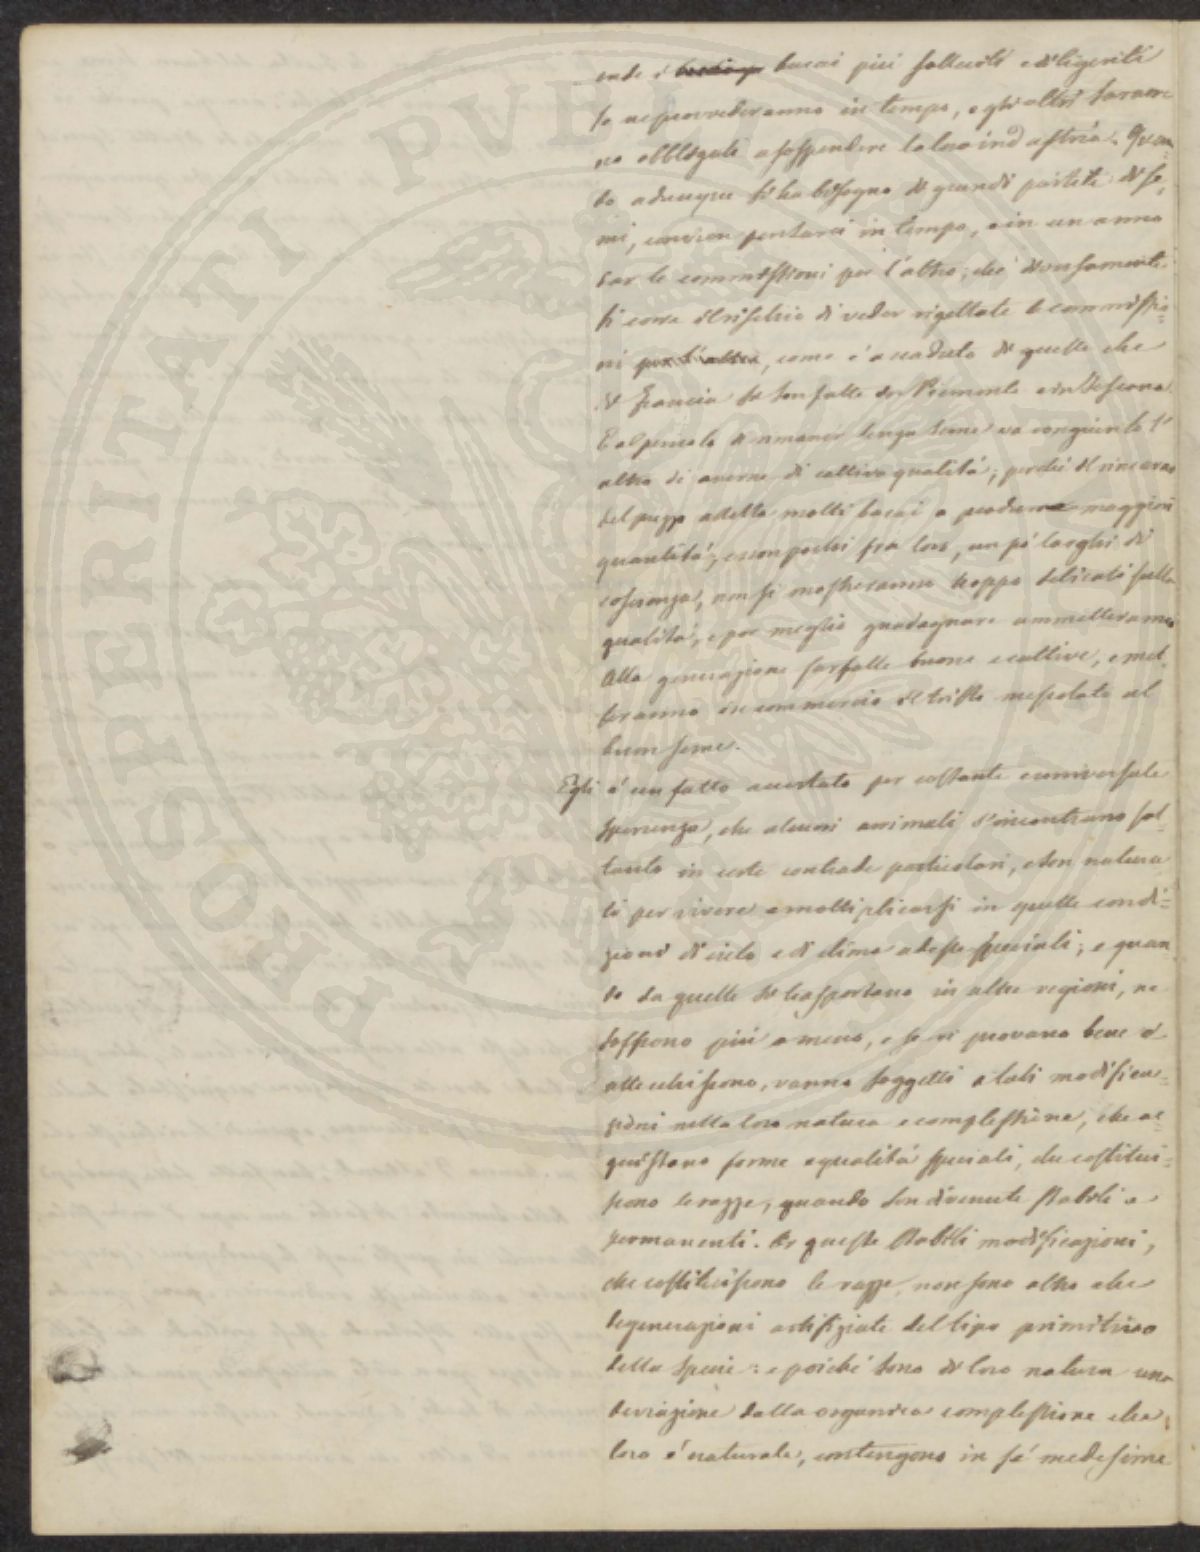 onde i bacai più solleciti e diligenti
se ne provvederanno in tempo, e gli altri saran
no obbligati a sospendere la loro industria. Quan
do adunque si ha bisogno di grandi partite di se,
mi, convien pensarci in tempo, e in un anno
dar le commissioni per l'altro; chè diversamente
si corre il rischio di veder rigettate le commissio=
ni per l'altro, come è accaduto di quelle che
di Francia si son fatte in Piemonte e in Toscana.
E al pericolo di rimaner senza seme va congiunto l'
altro di averne di cattiva qualità; perchè il rincaro
del prezzo alletta molti bacai a produrne maggiori
quantità; e non pochi fra loro, un pò larghi di
coscienza, non si mostreranno troppo delicati sulla
qualità, e per meglio guadagnare ammetteranno
alla generazione farfalle buone e cattive, e met
teranno in commercio il tristo mescolato al
buon seme.
Egli è un fatto accertato per costante e universale
sperienza, che alcuni animali s'incontrano sol=
tanto in certe contrade particolari, e son natura
ti per vivere e moltiplicarsi in quelle condi=
zioni di cielo e di clima ad esse speciali; e quan
do da quelle si trasportano in altre regioni, ne
soffrono più o meno, e se vi provano bene o
attecchiscono, vanno soggetti a tali modifica=
zioni nella loro natura e complessione, che ac=
quistano forme e qualità speciali, che costitui=
scono le razze, quando son divenute stabili e
permanenti. Or queste stabili modificazioni,
che costituiscono le razze, non sono altro che
degenerazioni artifiziate del tipo primitivo
della specie: e poichè sono di loro natura una
deviazione dalla organica complessione che
loro è naturale, contengono in sé medesime